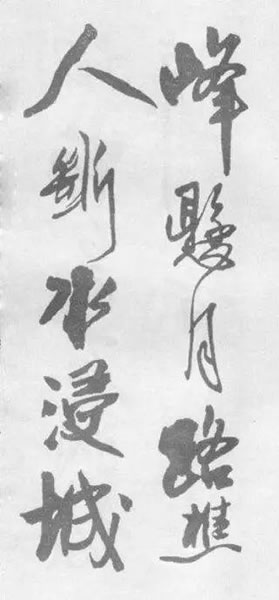 峰懸月路樵
人斷水浸城